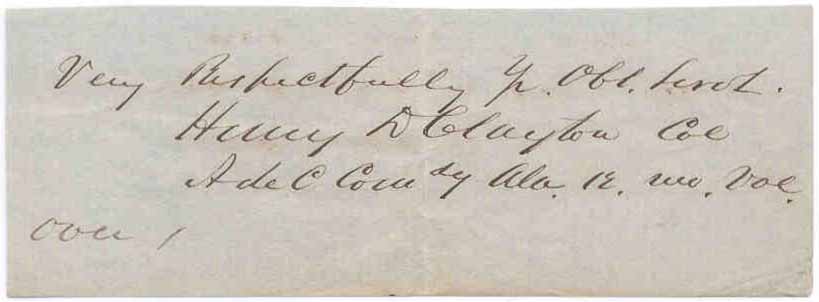 Very Respectfully Yr. Obt. Servt.
Henry D Clayton Col
A de C Comdg Ala. 12. mo. Vol.
over /